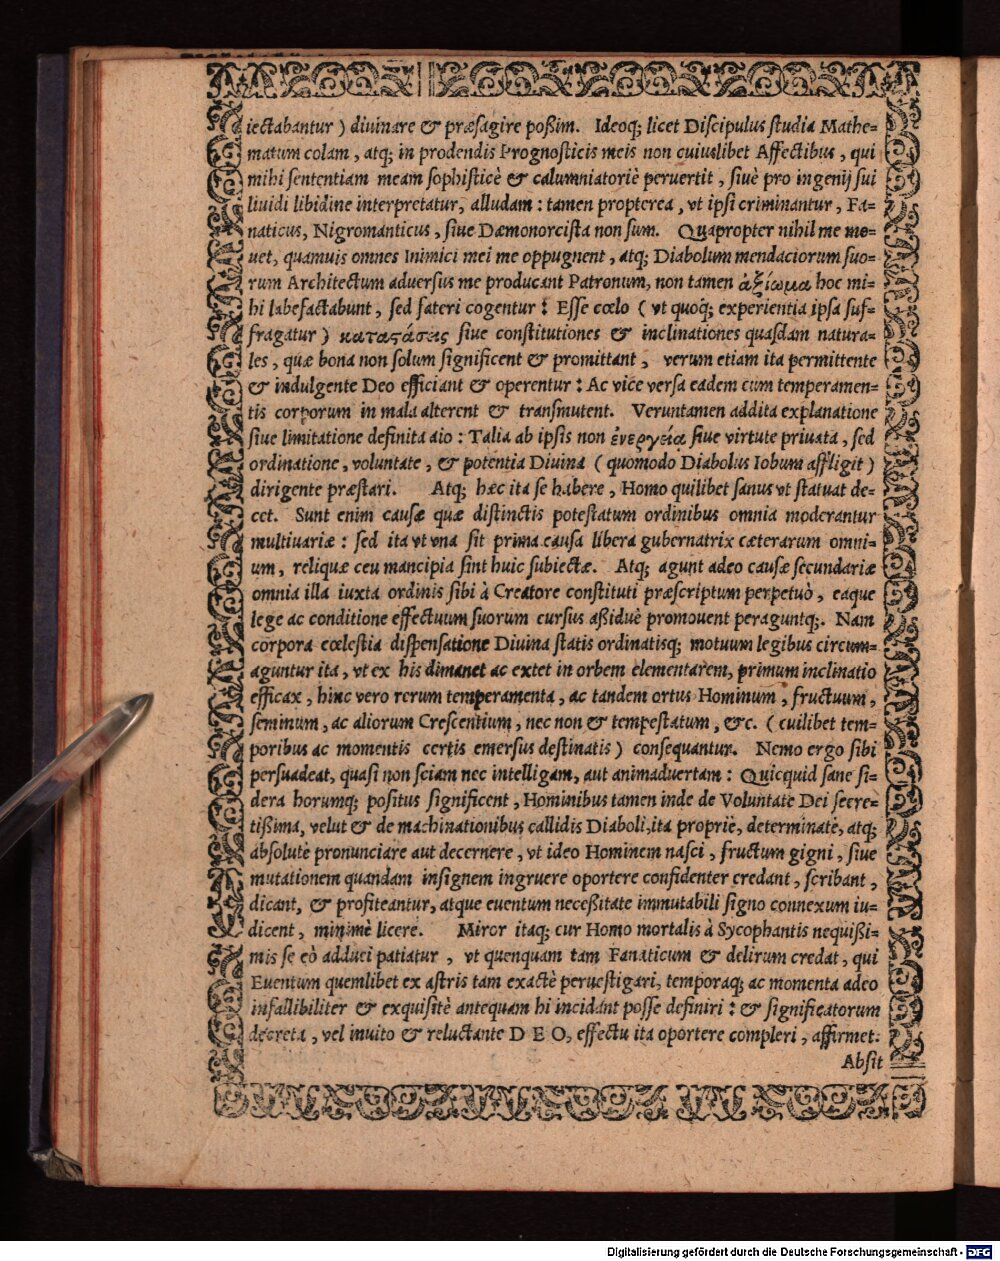 iectabantur) diuinare & præsagire poßim. Ideoq; licet Discipulus studia Mathe=
matum colam, atq; in prodendis Prognosticis meis non cuiuslibet Affectibus, qui
mihi sententiam meam sophisticè & calumniatoriè peruertit, siuè pro ingenij sui
liuidi libidine interpretatur, alludam: tamen propterea, vt ipsi criminantur, Fa=
naticus, Nigromanticus, siue Dæmonorcista non sum. Quapropter nihil me mo=
uet, quamuis omnes Inimici mei me oppugnent, atq; Diabolum mendaciorum suo=
rum Architectum aduersus me producant Patronum, non tamen ἀξίωμα hoc mi=
hi labefactabunt, sed fateri cogentur: Esse cœlo (vt quoq; experientia ipsa suf=
fragatur) καταϛάσεις siue constitutiones & inclinationes quasdam natura=
les, quæ bona non solum significent & promittant, verum etiam ita permittente
& indulgente Deo efficiant & operentur: Ac vice versa eadem cum temperamen=
tis corporum in mala alterent & transmutent. Veruntamen addita explanatione
siue limitatione definita aio: Talia ab ipsis non ἐνεργείᾳ siue virtute priuata, sed
ordinatione, voluntate, & potentia Diuina (quomodo Diabolus Iobum affligit)
dirigente præstari. Atq; hæc ita se habere, Homo quilibet sanus vt statuat de=
cet. Sunt enim causæ quæ distinctis potestatum ordinibus omnia moderantur
multiuariæ: sed ita vt vna sit prima causa libera gubernatrix cæterarum omni=
um, reliquæ ceu mancipia sint huic subiectæ. Atq; agunt adeo causæ secundariæ
omnia illa iuxta ordinis sibi à Creatore constituti præscriptum perpetuò, eaque
lege ac conditione effectuum suorum cursus aßiduè promouent peraguntq;. Nam
corpora cœlestia dispensatione Diuina statis ordinatisq; motuum legibus circum=
aguntur ita, vt ex his dimanet ac extet in orbem elementarem, primum inclinatio
efficax, hinc vero rerum temperamenta, ac tandem ortus Hominum, fructuum,
seminum, ac aliorum Crescentium, nec non & tempestatum, &c. (cuilibet tem=
poribus ac momentis certis emersus destinatis) consequantur. Nemo ergo sibi
persuadeat, quasi non sciam nec intelligam, aut animaduertam: Quicquid sane si=
dera horumq; positus significent, Hominibus tamen inde de Voluntate Dei secre=
tißima, velut & de machinationibus callidis Diaboli, ita propriè, determinatè, atq;
absolutè pronunciare aut decernere, vt ideo Hominem nasci, fructum gigni, siue
mutationem quandam insignem ingruere oportere confidenter credant, scribant,
dicant, & profiteantur, atque euentum neceßitate immutabili signo connexum iu=
dicent, minimè licere. Miror itaq; cur Homo mortalis à Sycophantis nequißi=
mis se eò adduci patiatur, vt quenquam tam Fanaticum & delirum credat, qui
Euentum quemlibet ex astris tam exactè peruestigari, temporaq; ac momenta adeo
infallibiliter & exquisitè antequam hi incidant posse definiri: & significatorum
decreta, vel inuito & reluctante DEO, effectu ita oportere compleri, affirmet.
Absit
Digitalisierung gefördert durch die Deutsche Forschungsgemeinschaft - DFG